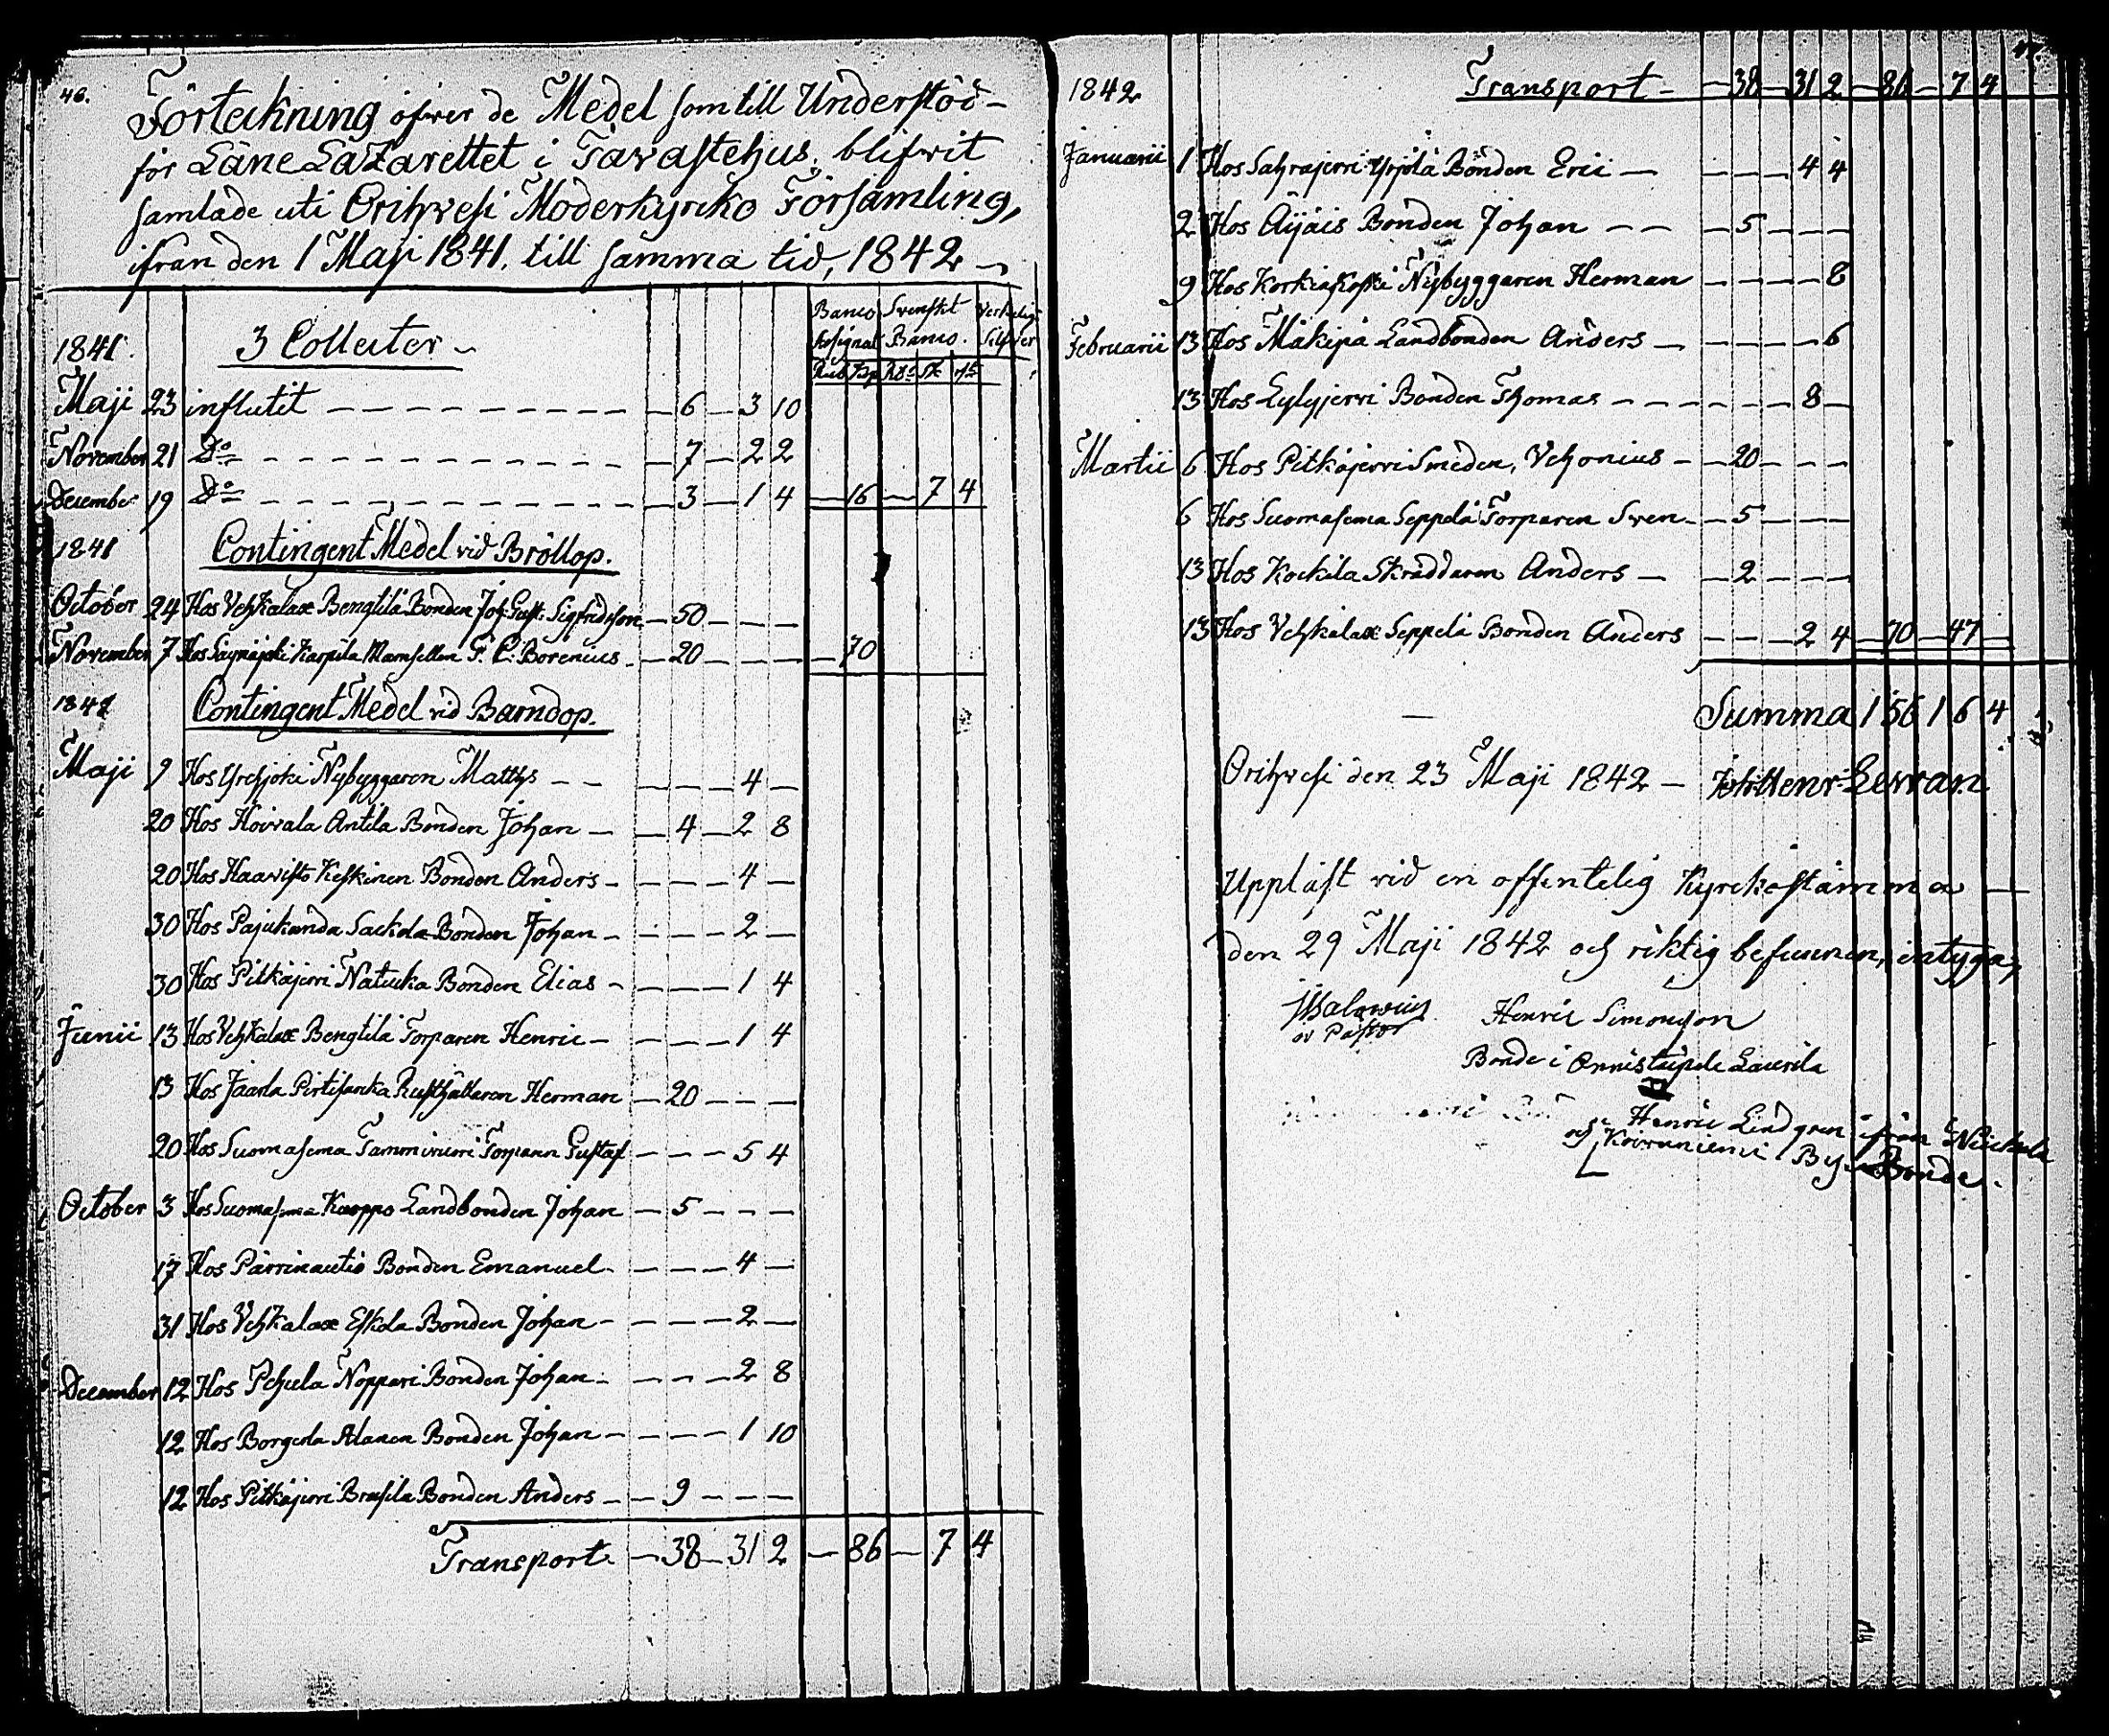 46.
Förteckning öfver de Medel som till Understöd-
för Läne Lazarettet i Tavastehus, blifvit
samlade uti Orihvesi Moderkyrko Församling,
ifrån den 1 Maji 1841. till samma tid, 1842 —
Banco Svenskt Verkelig
Assignat Banco. Silfver
1841. 3 Collecter —
Rub. Kp. Rd. Sk. rst.
Maji 23 influtit — 6 — 3 10
November 21 Do — 7 — 2 2
December 19 Do — 3 — 1 4 — 16 — 7 4
1841 Contingent Medel vid Bröllop.
October 24 Hos Vehkalax Bengtilä Bonden Joh. Gust. Sigfridsson — 50 — — —
November 7 Hos Säynäjoki Karpila Mamsellen F. C. Borenius — 20 — — — — 70
1841 Contingent Medel vid Barndop.
Maji 9 Hos Nybyggaren Matths — — — — — 4 —
20 Hos Koivala Antila Bonden Johan — — 4 — 2 8
20 Hos Haavisto Keskinen Bonden Anders — — — — 4 —
30 Hos Pajukanda Sackola Bonden Johan — — — — 2 —
30 Hos Pitkäjervi Natucka Bonden Elias — — — — 1 4
Junii 13 Hos Vehkalax Bengtilä Torparen Henric — — — — 1 4
13 Hos Jaarla Pirtisanka Rusthållaren Herman — 20 — — —
20 Hos Suomasema Tammivuori Torparen Gustaf — — — 5 4
October 3 Hos Suomasema Kuoppo Landbonden Johan — 5 — — —
17 Hos Pärrinautio Bonden Emanuel — — — — 4 —
31 Hos Vehkalax Eskola Bonden Johan — — — — 2 —
December 12 Hos Pehula Noppari Bonden Johan — — — — 2 8
12 Hos Borgerla Alanen Bonden Johan — — — — 1 10
12 Hos Pitkäjervi Brusila Bonden Anders — — 9 — — —
Transport. — 38 — 31 2 — 86 — 7 4
47.
1842 Transport — — 38 — 31 2 — 86 — 7 4
Januarii 1 Hos Sahrajervi Yrjölä Bonden Eric — — — — 4 4
2 Hos Äijäis Bonden Johan — — — 5 — — —
9 Hos Korkiakoski Nybyggaren Herman — — — — 8
Februarii 13 Hos Mäkipä Landbonden Anders — — — — — 6
13 Hos Lylyjervi Bonden Thomas — — — — — — — 8 —
Martii 6 Hos Pitkäjervi Smeden, Vehonius — — 20 — — —
6 Hos Suomasema Seppelä Torparen Sven — — 5 — — —
13 Hos Kockila Skräddaren Anders — — 2 — — —
13 Hos Vehkalax Seppelä Bonden Anders — — — 2 4 — 70 — 47 —
Summa 156 1 6 4
Orihvesi den 23 Maji 1842 — Joh. Henr.
Uppläst vid en offentelig Kyrckostämma —
den 29 Maji 1842 och riktig befunnen, intyga,
Pastor
Henric Simonson
Bonde i Onnistaipale Laurila
Henric Lindgren ifrån
och Koivuniemi By Bonde.